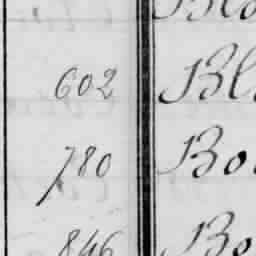 602 Bl
780 Bo
846 Bo